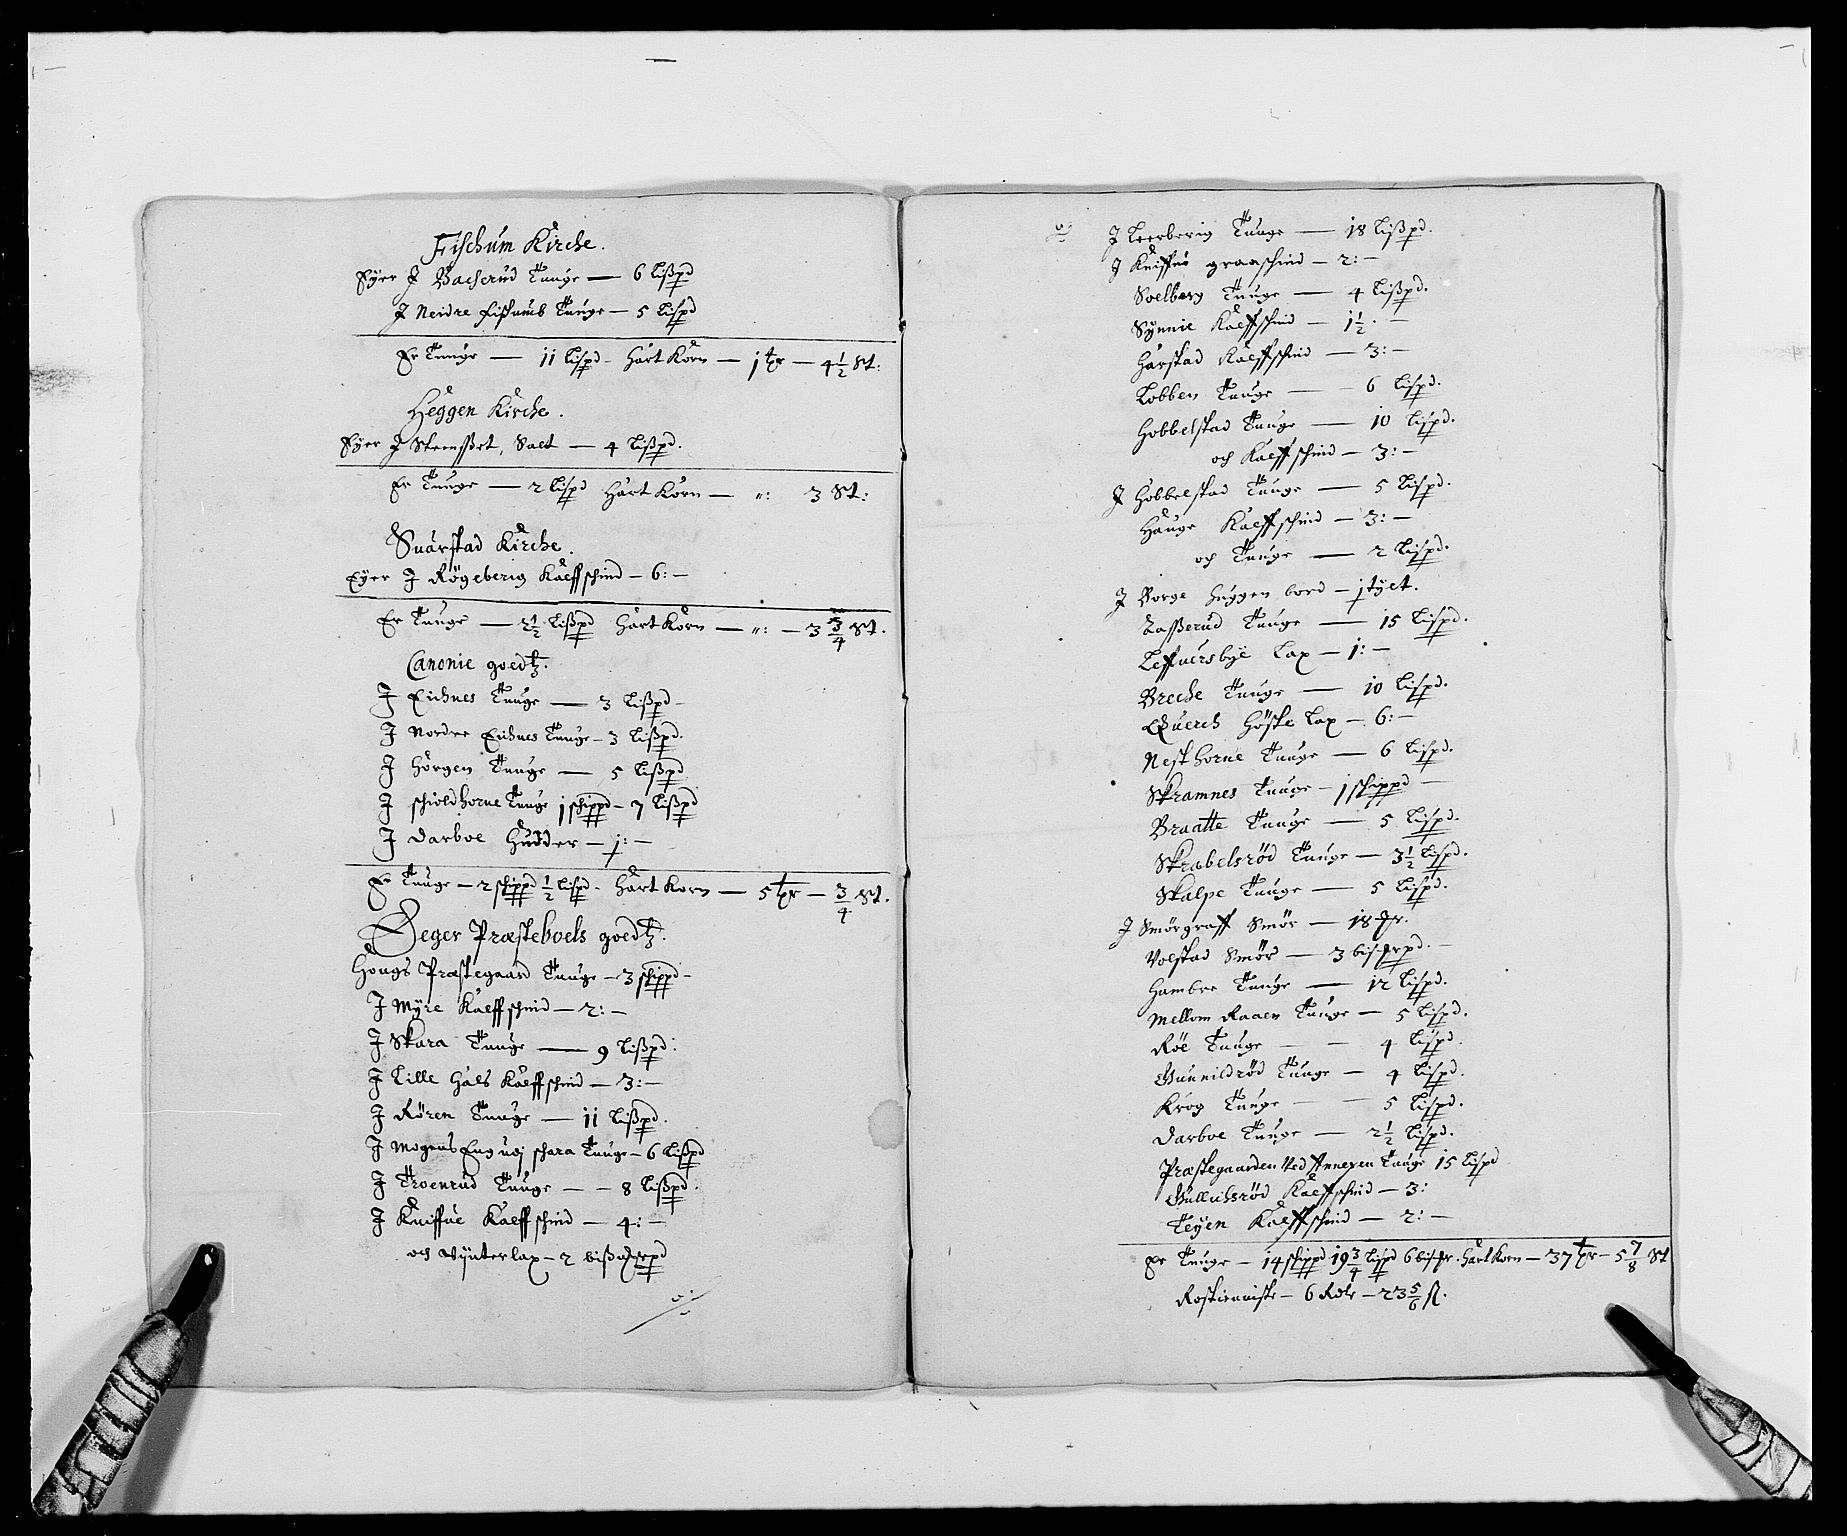 Fischum Kirche.
Eyer J Bacherud Tunge — 6 Lißpd
J Neidre fischumb Tunge — 5 Lispd
Er Tunge — 11 Lispd - Hart Korn — 1 tr — 4 1/2 St:
Heggen Kirche.
Eyer J Steenssset, Salt — 4 Lißpd.
Er Tunge — 2 Lispd Hart Korn — „: 3 St:
Snarstad Kirche.
Eyer J Rögeberig Kalffschind — 6: —
Er Tunge — 2 1/2 Lißpd Hart Korn — „: — 3 3/4 St.
Canonie goedtz.
J Eichnes Tunge — 3 Lißpd -
J Nordre Eichnes Tunge — 3 Lißpd.
J Hörgen Tunge — 5 Lißpd
J schioldhorne Tunge 1 schippd — 7 Lißpd
J Darboe Hudder — 1: —
Er Tunge — 2 schippd 1/2 Lispd - Hart Korn — 5 tr — 3/4 St.
Øeger Præsteboels goedtz.
Hougs Præstegaard Tunge — 3 schippd -
J Myre Kalffschind — 2: —
J Skara Tunge — 9 Lißpd.
J Lille Hals Kalffschind — 3: —
J Rören Tunge — 11 Lißpd.
J Mogens Eng udj schara Tunge — 6 Lißpd
J Troenrud Tunge — — 8 Lißpd.
J Kniffue Kalffschind — 4: —
och Vynterlax — 2 bißmerpd
J Leerberig Tunge — 18 Lißpd.
J Kniffue graaschind — 2: —
Soelberg Tunge — 4 Lißpd.
Synnie Kalffschind — 1 1/2. —
Harstad Kalffschind — 3: —
Lobben Tunge — — 6 Lispd.
Hobbelstad Tunge — 10 Lispd.
och Kalffschind — 3: —
J Hobbelstad Tunge — 5 Lispd.
Hauge Kalffschind — 3: —
och Tunge — 2 Lispd.
J Borge Huggen bord — 1 tylt.
Laßerud Tunge — 15 Lispd.
Leffuersbye Lax — 1: —
Breche Tunge — 10 Lispd.
Querch Höste Lax — 6: —
Nesthorne Tunge — 6 Lispd.
Skramnes Tunge — 1 schippd —
Braatte Tunge — 5 Lispd.
Skrabelsröd Tunge — 3 1/2 Lispd.
Skalpe Tunge — 5 Lispd.
J Smörgraff Smör — 18 mr.
Volstad Smör — 3 bismrpd. —
Hambre Tunge — 12 Lispd.
Mellom Raaen Tunge — 5 Lispd.
Röe Tunge — — 4 Lispd.
Gunnildröd Tunge — 4 Lispd.
Krog Tunge — — 5 Lispd.
Darboe Tunge — 2 1/2 Lispd.
Præstegaarden Ved Annexen Tunge 15 Lispd
Gulluchsröd Kalffschind — 3:
Teyen Kalffschind — 2: —
Er Tunge — 14 schippd 19 3/4 Lispd 6 bismr. Hart Korn — 37 tr — 5 7/8 St
Rostienniste — 6 Rdr — 23 5/6 ß.